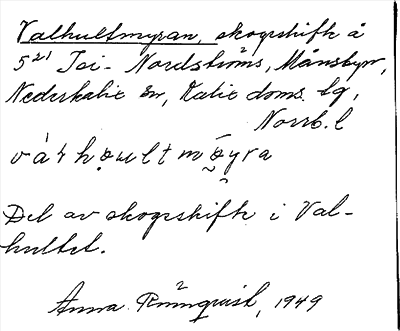 Valhultmyran, skogsskifte å
5²¹ Toi- Nordströms, Månsbyn,
Nederkalix sn, Kalix doms. lg,
Norrb. l
Del av skogsskifte i Val-
hultet.
Anna Rönnquist, 1949